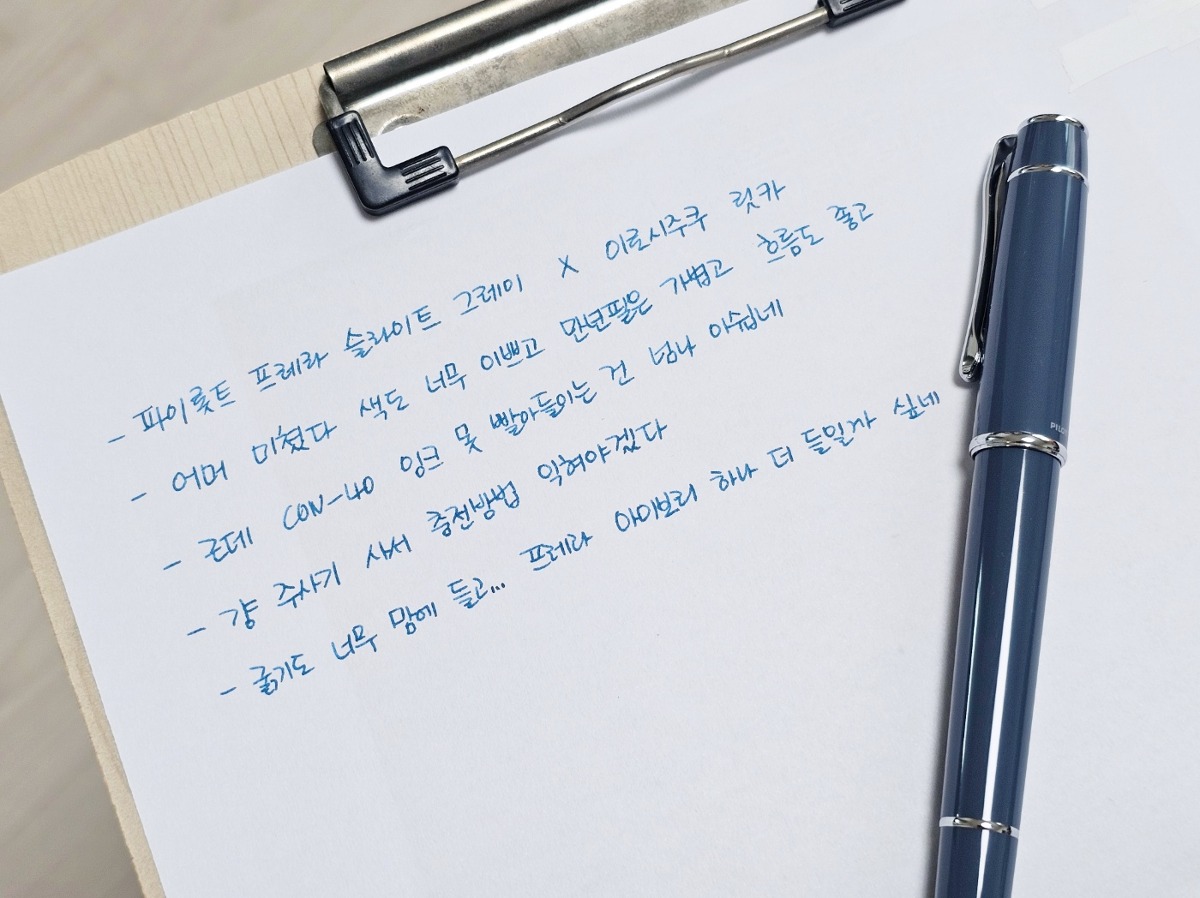 - 파이롯트 프레라 슬라이트 그레이 X 이로시주쿠 릿카
- 어머 미쳤다 색도 너무 이쁘고 만년필은 가볍고 흐름도 좋고
- 근데 CON-40 잉크 못 빨아들이는 건 넘나 아쉽네
- 걍 주사기 사서 충전방법 익혀야겠다
- 굵기도 너무 맘에 들고... 프레라 아이보리 하나 더 들일까 싶네
PILOT